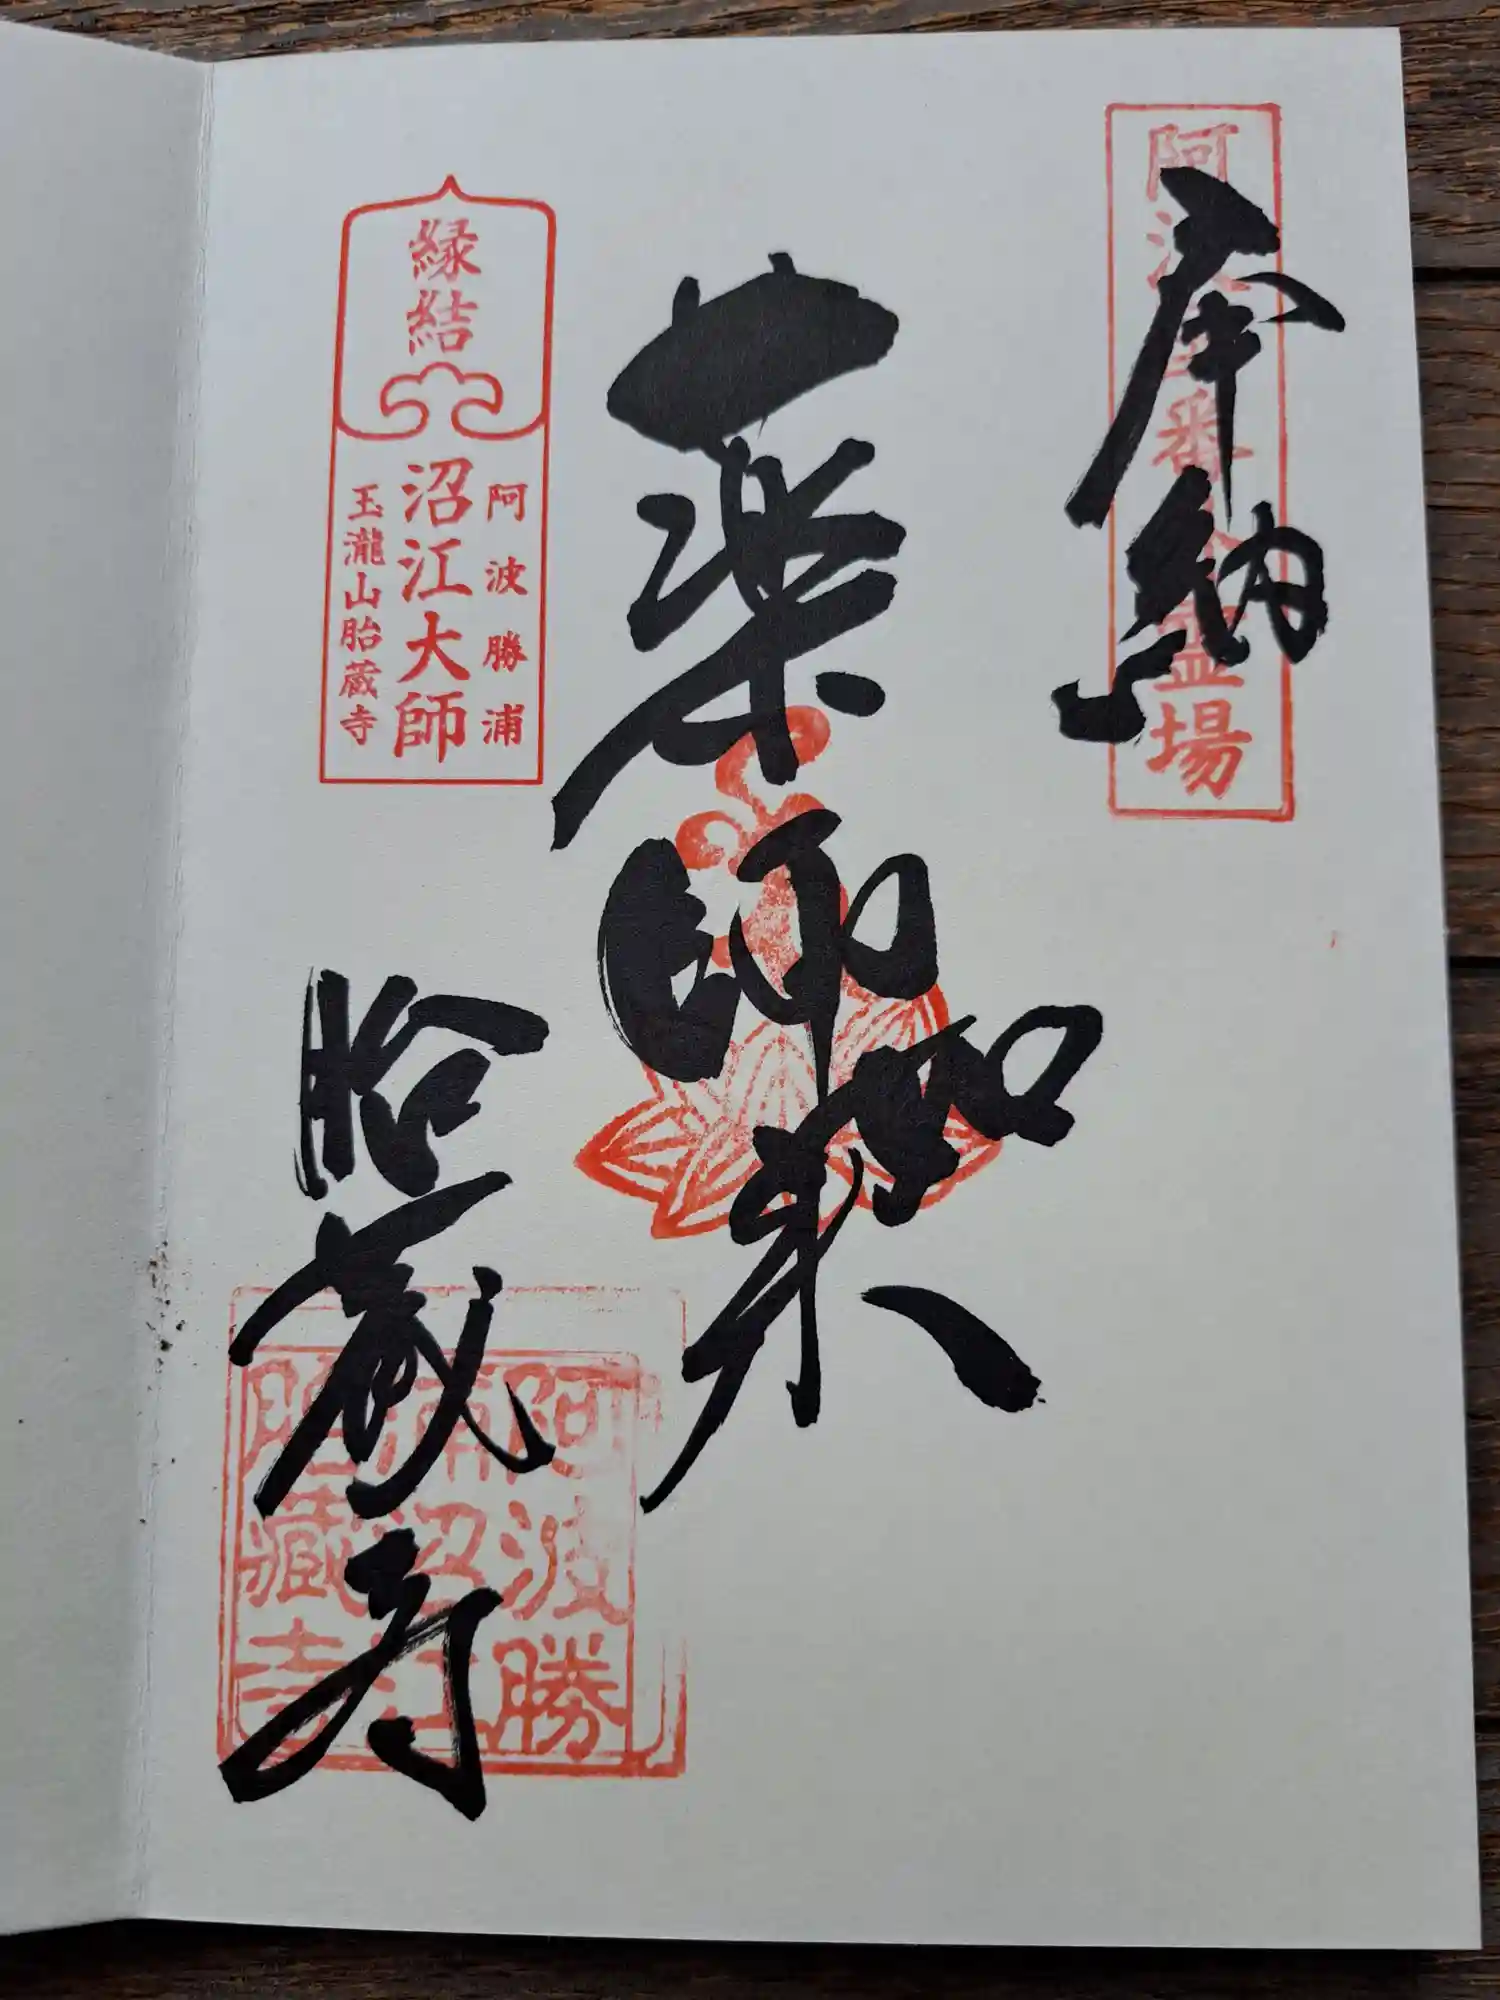 奉納
阿波番霊場
薬師如来
縁結
阿波勝浦
沼江大師
玉瀧山胎蔵寺
胎蔵寺
阿波勝
浦沼江
胎藏寺